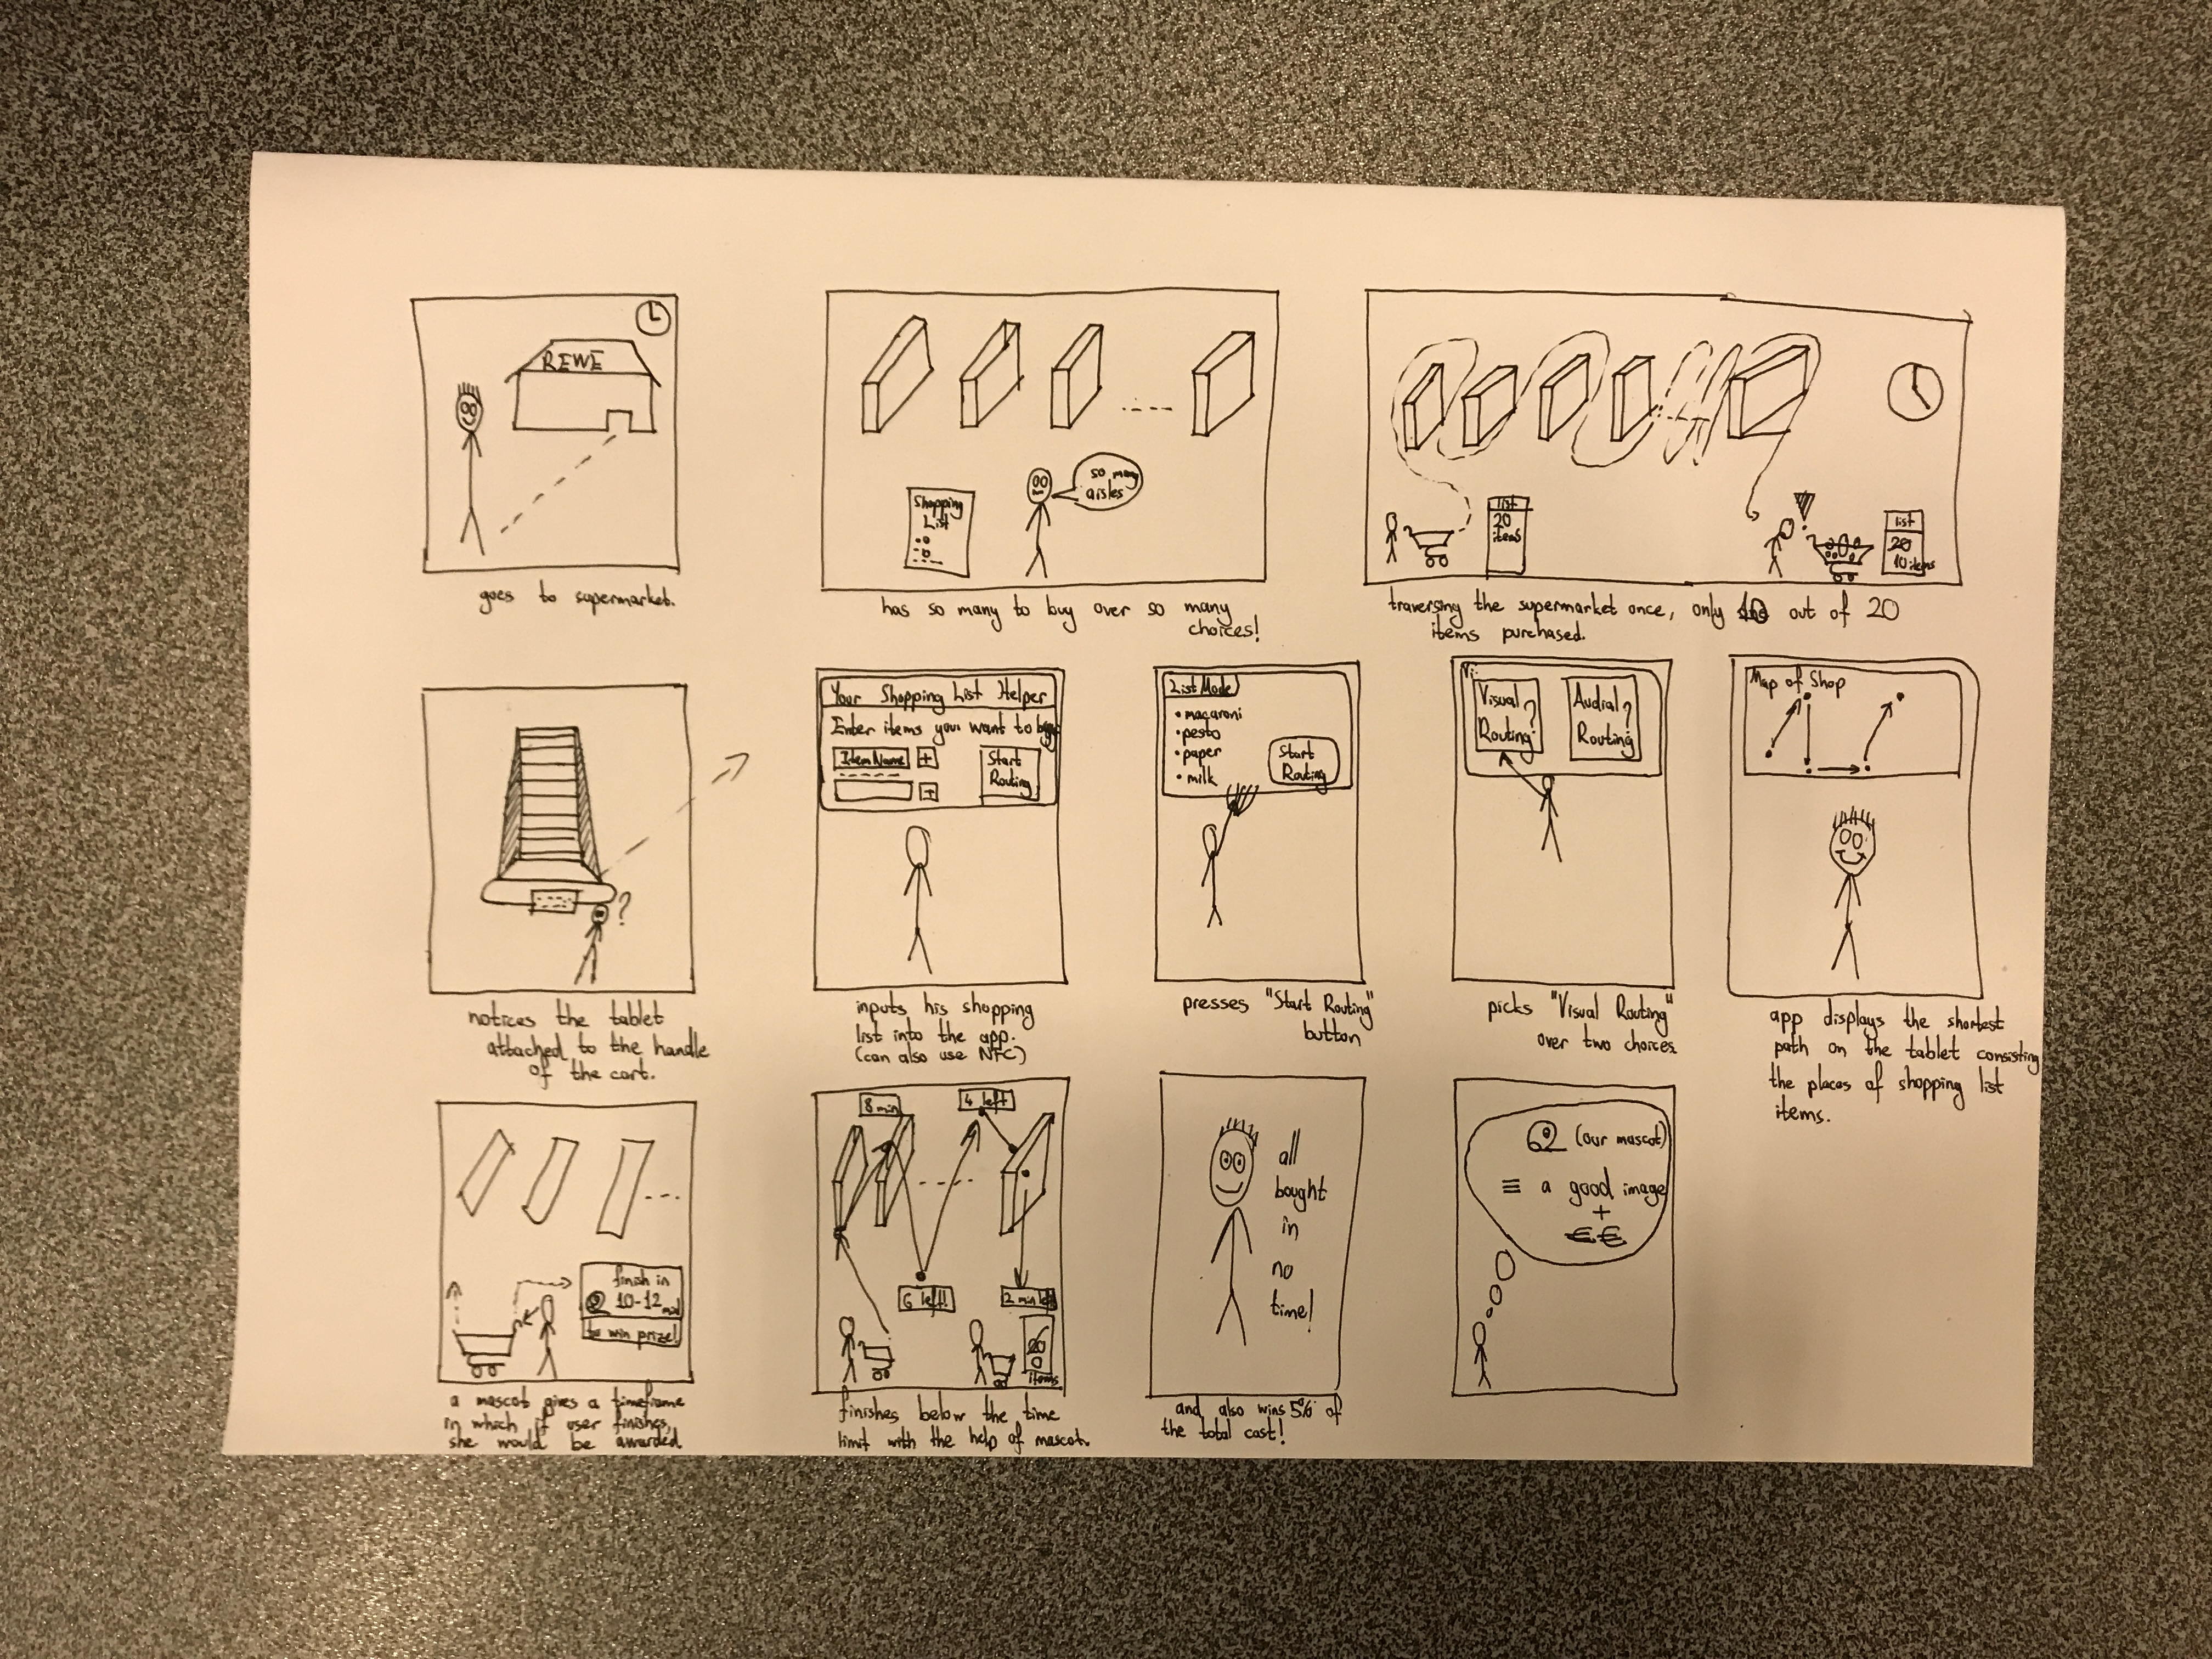 REWE
goes to supermarket.
Shopping
List
so many
aisles
has so many to buy over so many
choices!
list
20
items
list
20
10 items
traversing the supermarket once, only 10 out of 20
items purchased.
?
notices the tablet
attached to the handle
of the cart.
Your Shopping List Helper
Enter items you want to buy
Item Name
+
+
Start
Routing
inputs his shopping
list into the app.
(can also use NFC)
List Mode
• macaroni
• pesto
• paper
• milk
Start
Routing
presses "Start Routing"
button
Visual?
Routing
Audial?
Routing
picks "Visual Routing"
over two choices
Map of Shop
app displays the shortest
path on the tablet consisting
the places of shopping list
items.
finish in
10-12 min
to win prize!
a mascot gives a timeframe
in which if user finishes,
she would be awarded
8 min
6 left!
4 left
2 min left
20
0
items
finishes below the time
limit with the help of mascot.
all
bought
in
no
time!
and also wins 5% of
the total cost!
(our mascot)
≡ a good image
+
€€